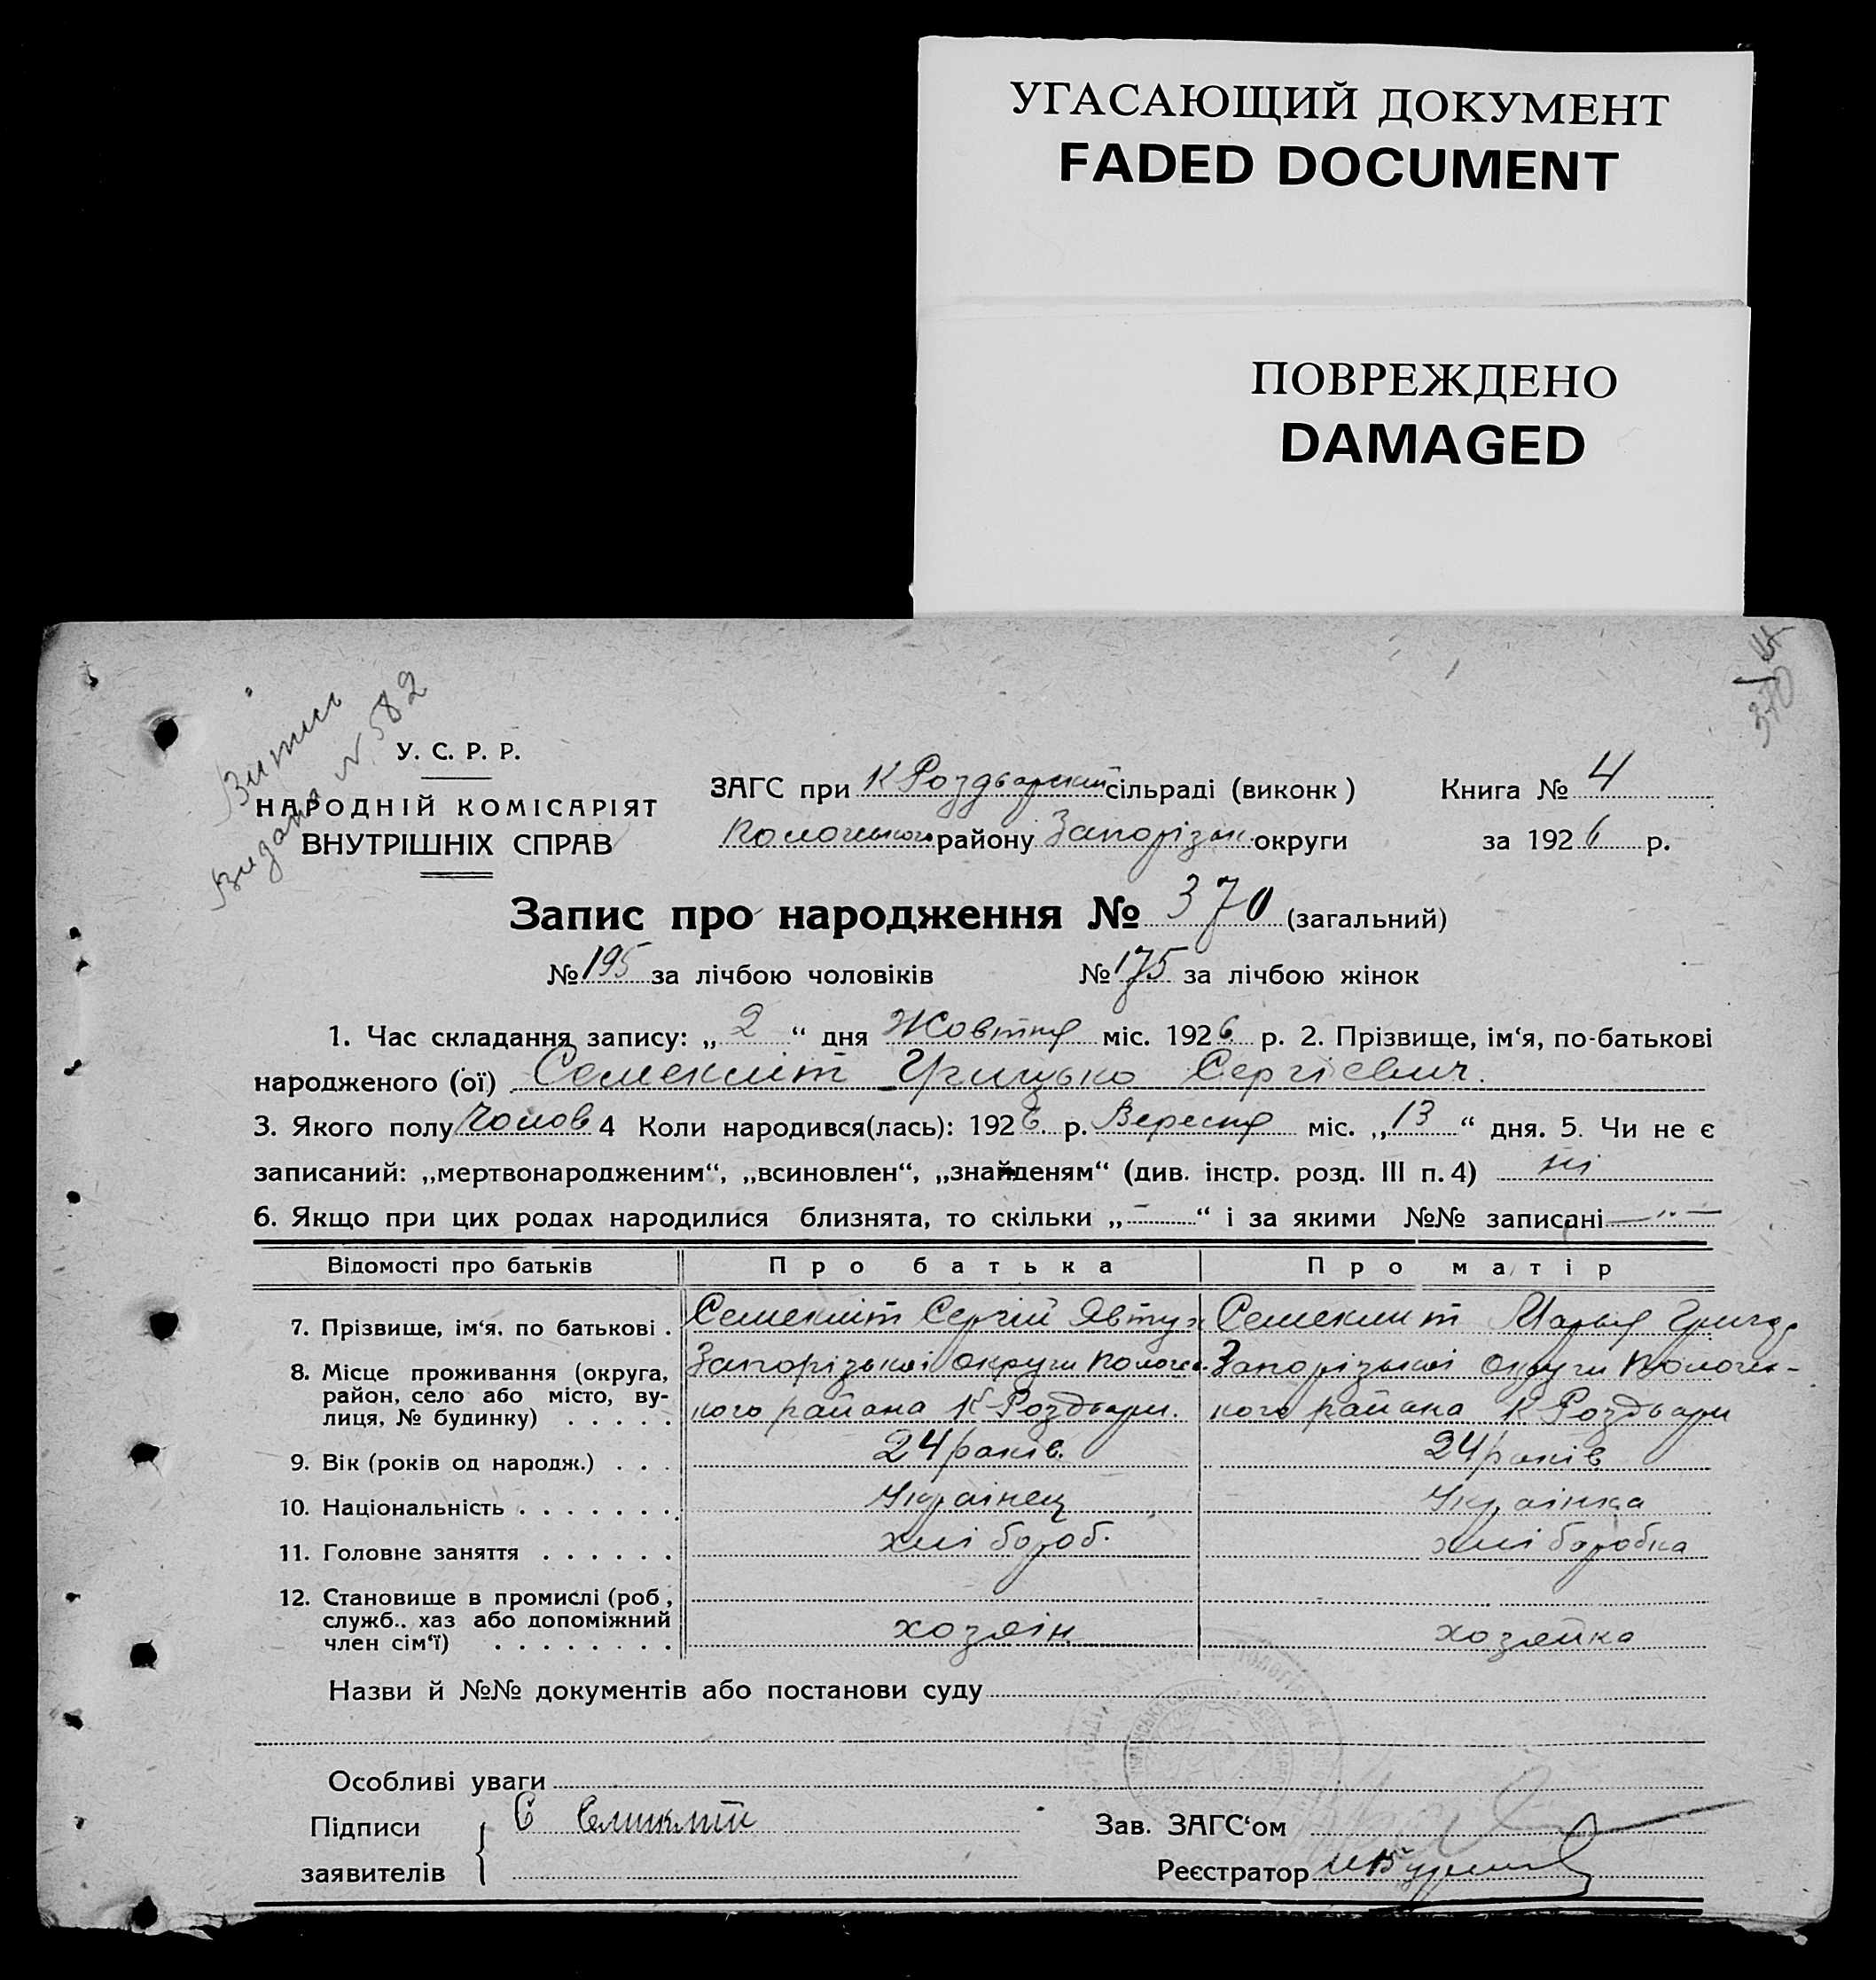 УГАСАЮЩИЙ ДОКУМЕНТ
FADED DOCUMENT
ПОВРЕЖДЕНО
DAMAGED
370
Витись
видано N 582
У. С. Р. Р.
НАРОДНІЙ КОМІСАРІЯТ
ВНУТРІШНІХ СПРАВ
ЗАГС при К Роздорский сільраді (виконк )
Пологського району Запорізьк округи
Книга № 4
за 1926 р.
Запис про народження № 370 (загальний)
№ 195 за лічбою чоловіків № 175 за лічбою жінок
1. Час складання запису: „ 2 “ дня Жовтня міс. 1926 р. 2. Прізвище, ім‘я, по-батькові
народженого (ої) Семекліт Грицько Сергієвич.
3. Якого полу Чолов 4 Коли народився(лась): 1926 р. Вересня міс. „ 13 “ дня. 5. Чи не є
записаний: „мертвонародженим“, „всиновлен“, „знайденям“ (див. інстр. розд. III п. 4) ні
6. Якщо при цих родах народилися близнята, то скільки „ - “ і за якими №№ записані — „ —
Відомості про батьків Про батька Про матір
7. Прізвище, ім‘я. по батькові . Семекліт Сергій Явтух Семеклит Марья
8. Місце проживання (округа, Запорізькоі округи Пологс- Запорізькоі округи Пологсь-
район, село або місто, ву- кого района К-Роздори. кого района К Роздори
лиця, № будинку) . . . . .
9. Вік (років од народж.) . . . 24 років. 24 років
10. Національність . . . . . . . Українец Українка
11. Головне заняття . . . . . . хлібороб. хліборобка
12. Становище в промислі (роб ,
служб.. хаз або допоміжний хозяін хозяйка
член сім‘ї) . . . . . . . .
Назви й №№ документів або постанови суду
Особливі уваги
Підписи С Семиклит Зав. ЗАГС‘ом
заявителів Реєстратор